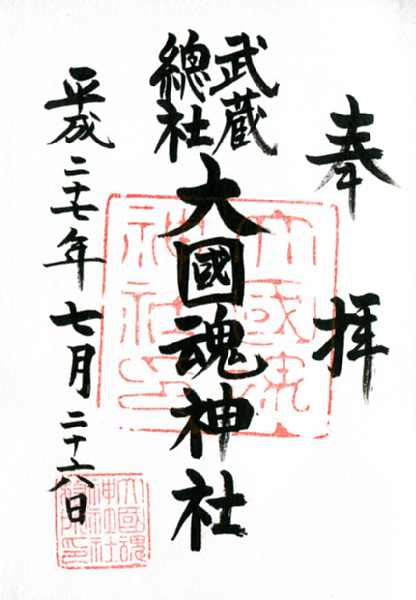 奉拝
武蔵
總社
大國魂神社
平成二十七年七月二十六日
大國魂
神社印
大國魂
神社社